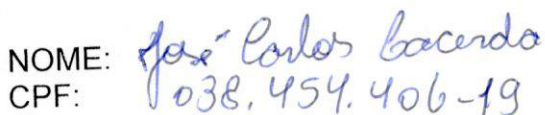 NOME: José Carlos Lacerda
CPF: 038.454.406-19